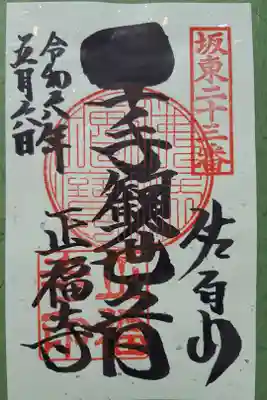 坂東二十三番
佐白山
千手観世音
正福寺
令和六年
五月六日